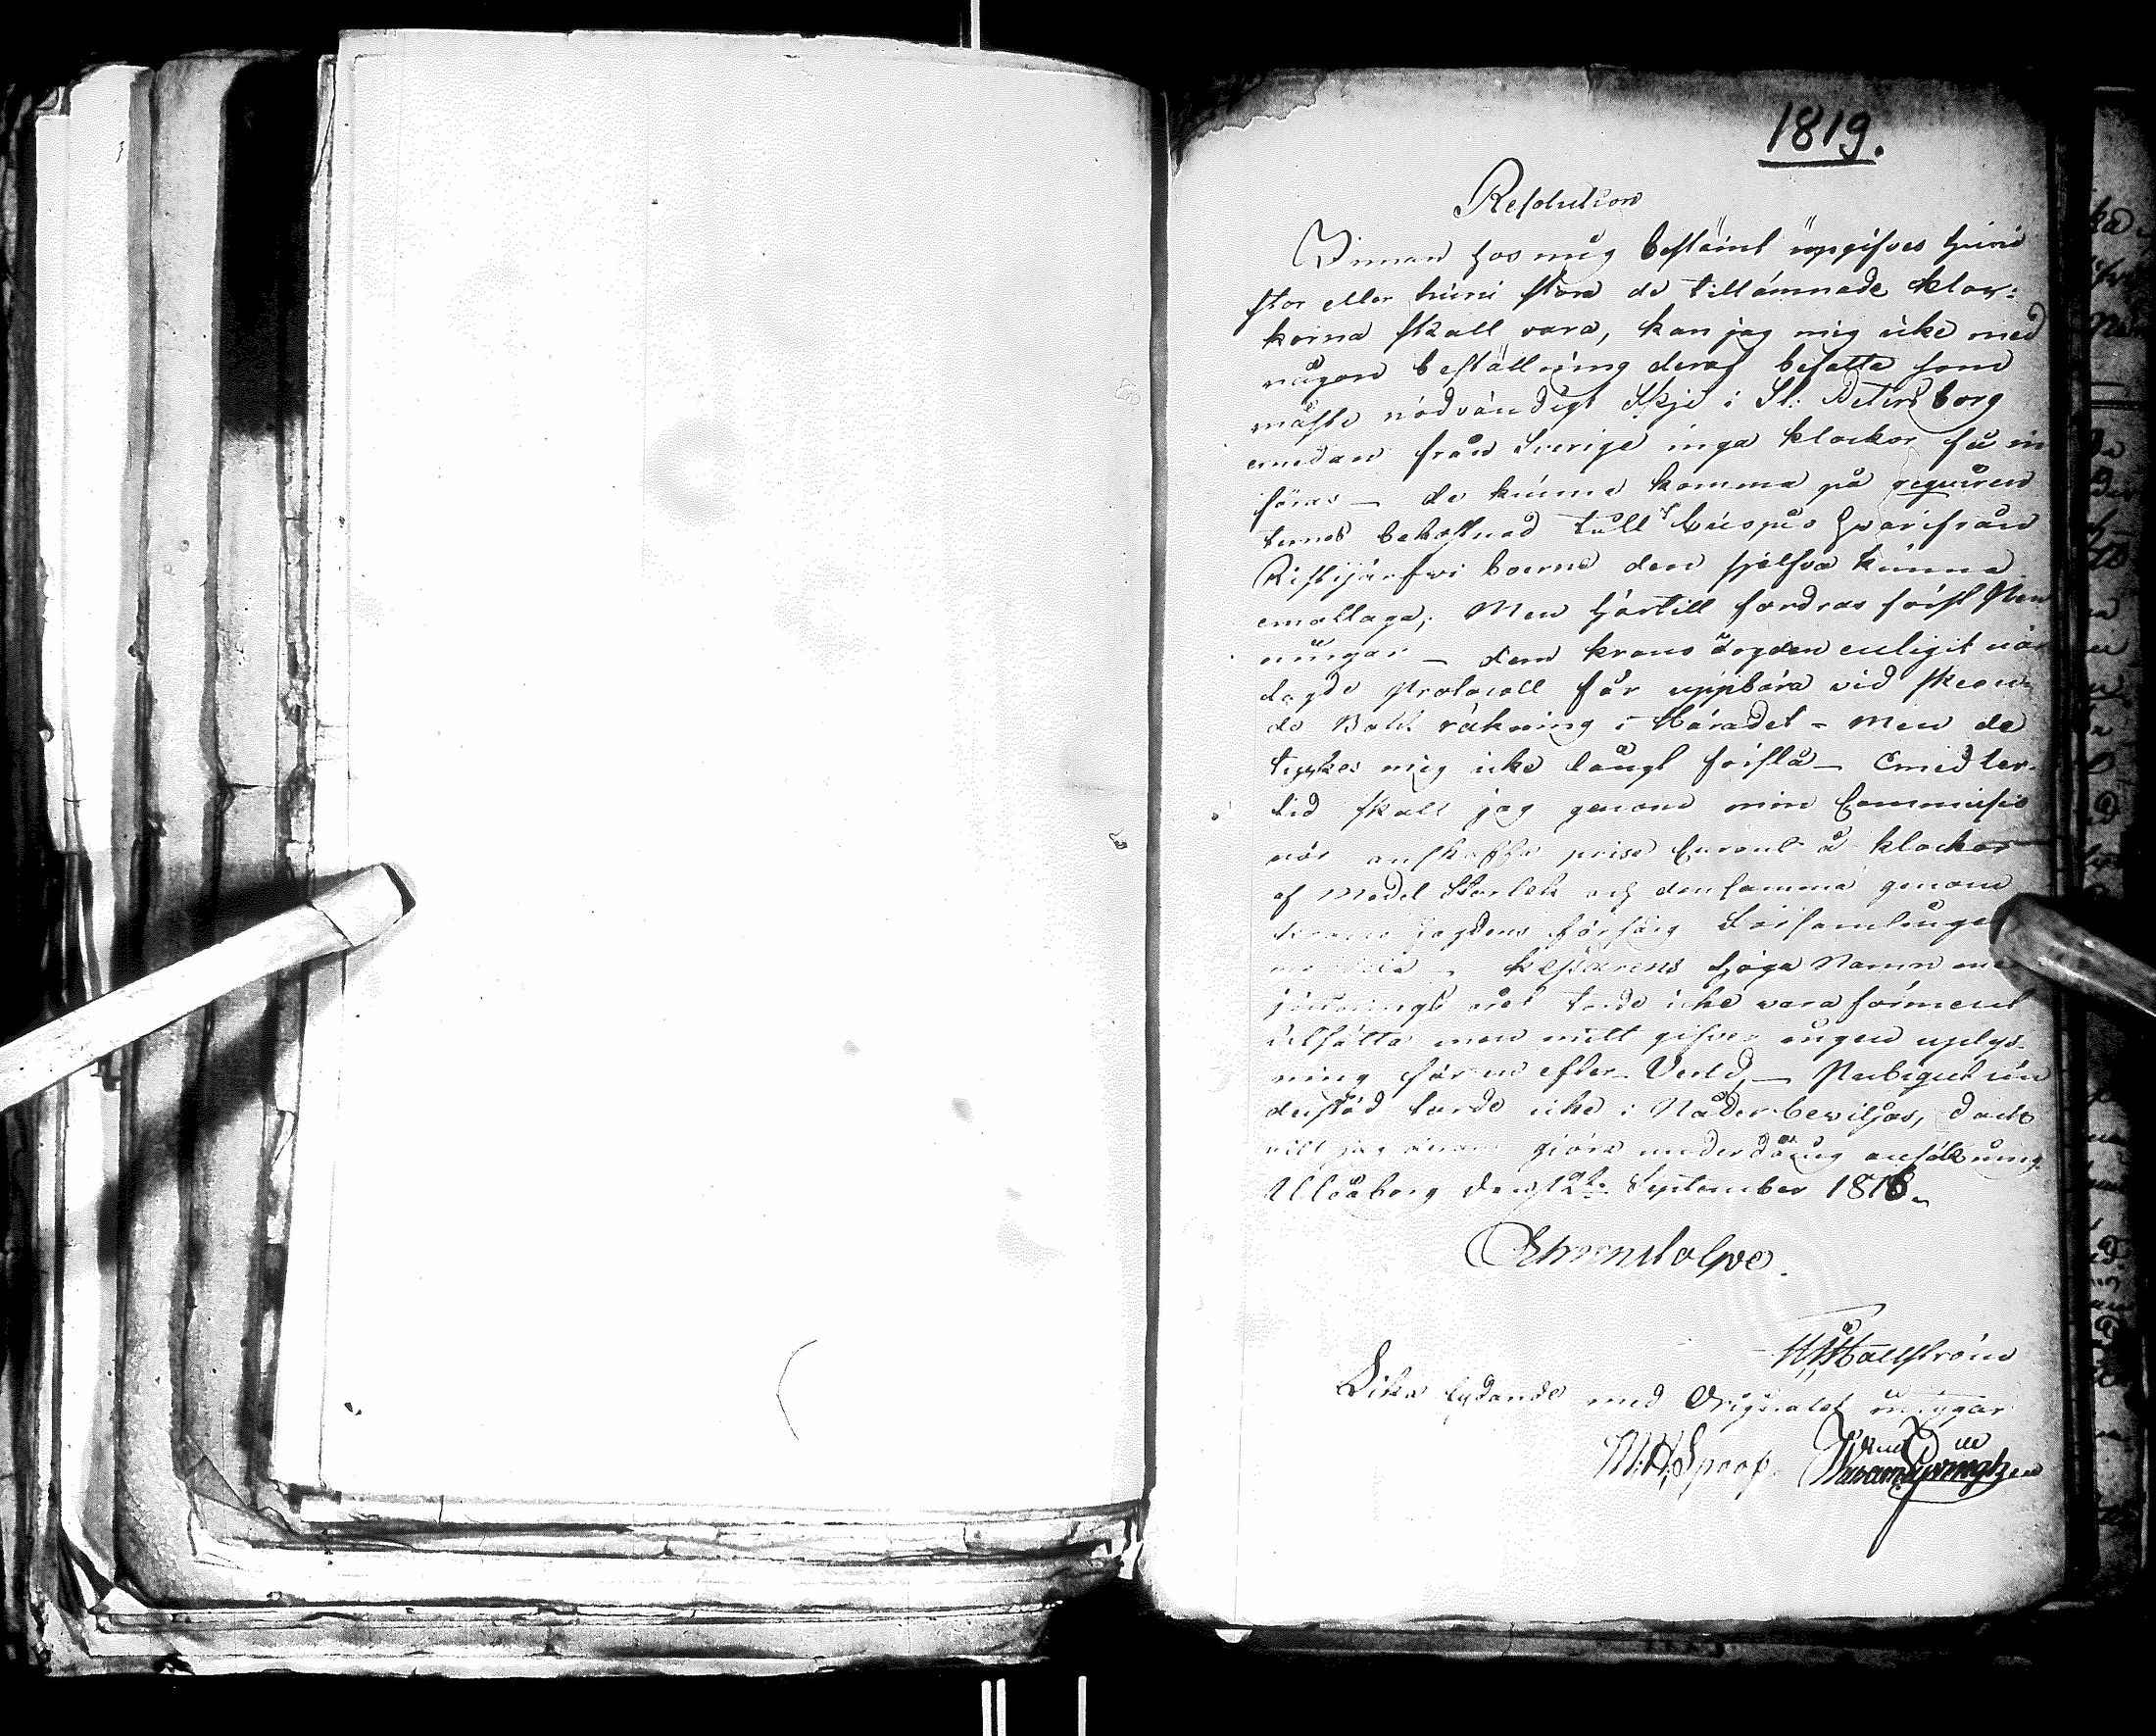 1819.
Resolution
Innan hos mig bestämt uppgifves huru
stor eller huru stora de tillämnade Kloc-
korna skall vara, kan jag mig icke med
någon beställning deraf befatta som
måste nödvändigt Skje i St: Petersborg
emedan från Sverige inga klockor få in
föras — de kunna komma på requiren
ternes bekostnad till Cuopio hvarifrån
Ristijärfvi boerne den sjelfva kunna
emottaga; Men härtill fordras först Pen
ningar — dem krono fogden enligit när
lagde Protocoll får uppbära vid skeen-
de Bold räkning i Häradet - Men de
tyckes mig icke långt förslå — Emedler-
tid skall jag genom min Commissio
när anskaffa pris Curant å klockor
af Medel Storlek och densamma genom
krono fogdens försorg Församlingen
meddela - Kejsarens höga Namn med
årtal torde icke vara förment
utsätta men mitt gifver ingen uplys-
ning för en efter Verld, — Publiqut un
derstöd torde icke i Nåder beviljas, dock
vill jag derom giöra underdånig ansökning
Uleåborg den 12te September 1818.
Ehrenstolpe.
Hällström
Lika lydande med Originalet intygar
M: H: Spoof.